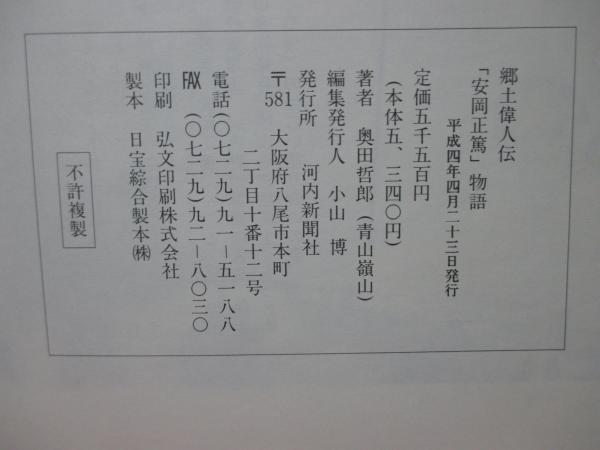 郷土偉人伝
「安岡正篤」物語
平成四年四月二十三日発行
定価五千五百円
(本体五、三四〇円)
著者 奥田哲郎(青山嶺山)
編集発行人 小山 博
発行所 河内新聞社
〒581 大阪府八尾市本町
二丁目十番十二号
電話(〇七二九)九一-五一八八
FAX(〇七二九)九二-八〇三〇
印刷 弘文印刷株式会社
製本 日宝綜合製本㈱
不許複製